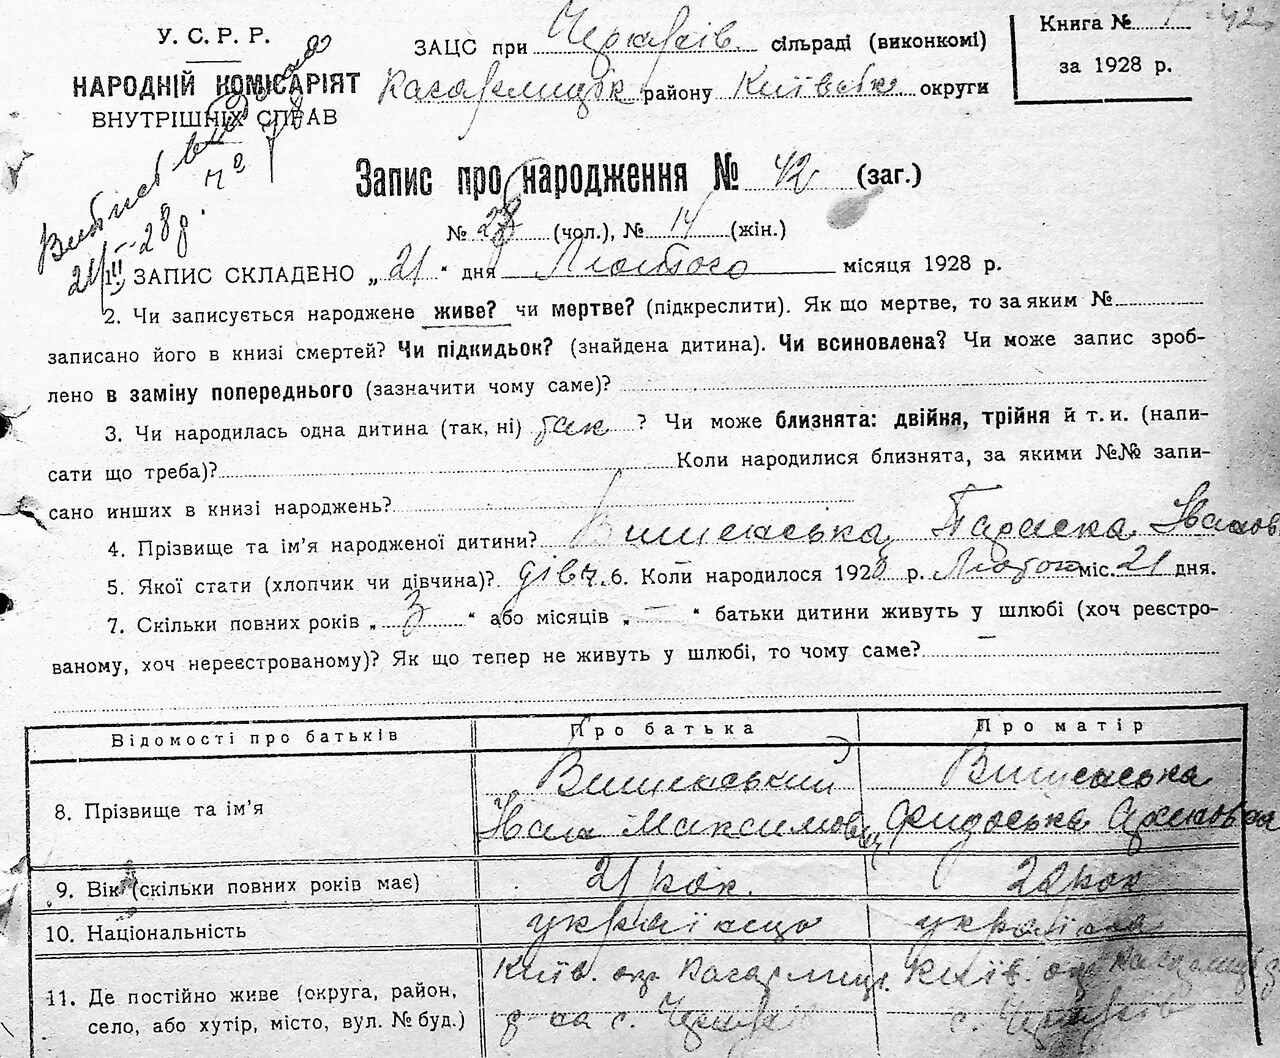 У. С. Р. Р.
НАРОДНІЙ КОМІСАРІЯТ
ВНУТРІШНІХ СПРАВ
ЗАЦС при Черкасів. сільраді (виконкомі)
Кагарлицьк району Київськ округи
Книга №
за 1928 р.
Запис про народження № 42 (заг.)
№ 28 (чол.), № 14 (жін.)
1. ЗАПИС СКЛАДЕНО „ 21 “ дня Лютого місяця 1928 р.
2. Чи записується народжене живе? чи мертве? (підкреслити). Як що мертве, то за яким №
записано його в книзі смертей? Чи підкидьок? (знайдена дитина). Чи всиновлена? Чи може запис зроб-
лено в заміну попереднього (зазначити чому саме)?
3. Чи народилась одна дитина (так, ні) так ? Чи може близнята: двійня, трійня й т. и. (напи-
сати що треба)? Коли народилися близнята, за якими №№ запи-
сано инших в книзі народжень?
4. Прізвище та ім’я народженої дитини? Вишенська Параска Іванов
5. Якої стати (хлопчик чи дівчина)? дівч. 6. Коли народилося 1928 р. Лютого міс. 21 дня.
7. Скільки повних років „ 3 “ або місяців „ — “ батьки дитини живуть у шлюбі (хоч реєстро-
ваному, хоч нереєстрованому)? Як що тепер не живуть у шлюбі, то чому саме? —
Відомості про батьків Про батька Про матір
8. Прізвище та ім’я
Вишенський
Іван Максимович
Вишенська
9. Вік (скільки повних років має) 21 рок. 20 рок
10. Національність українцю українка
11. Де постійно живе (округа, район,
село, або хутір, місто, вул. № буд.)
Київ. окр. Кагарлиц.
р-на с.
Київ. окр
с.